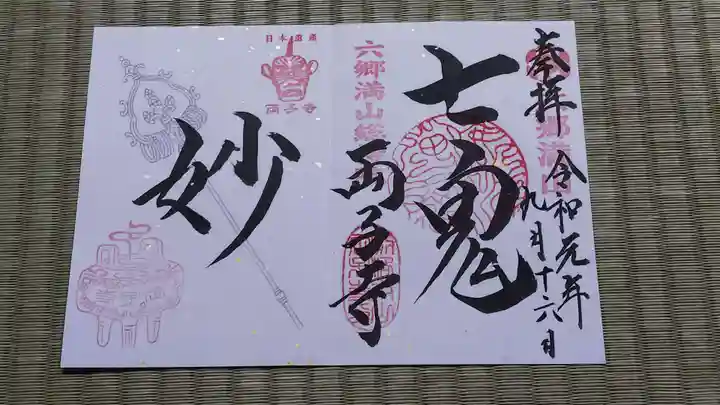 奉拝
令和元年
九月十六日
七鬼
六郷満山総
両子寺
妙
日本遺産
両子寺